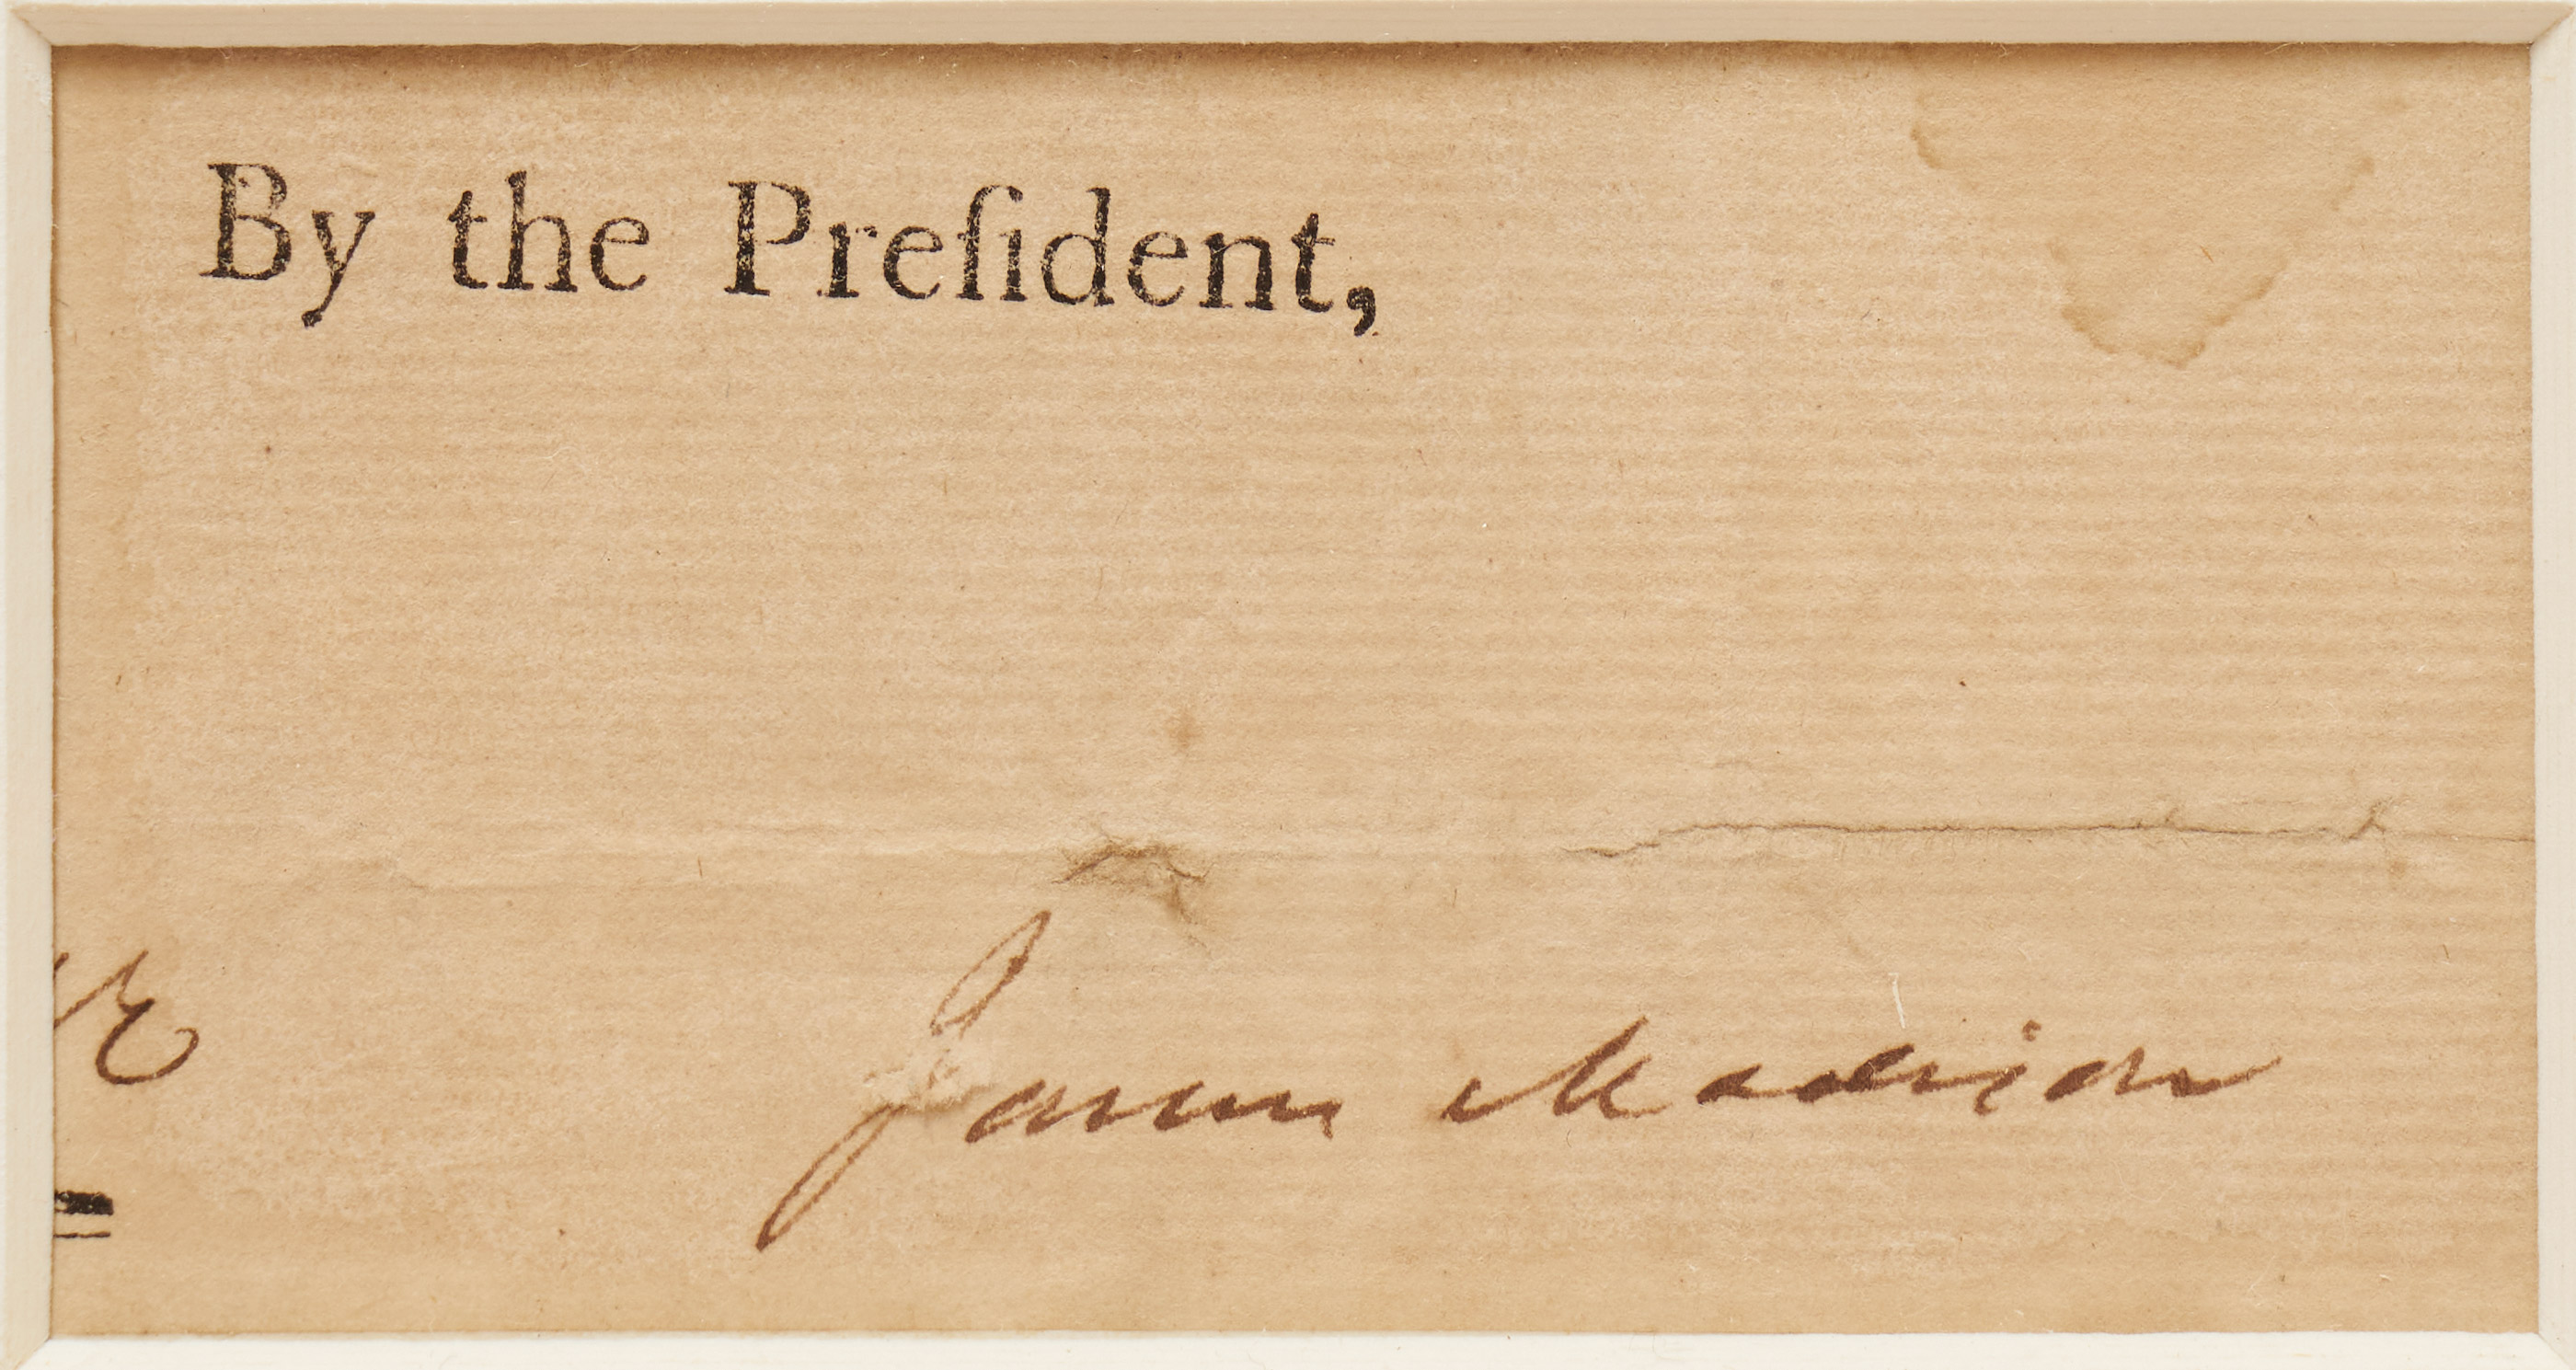 By the Preſident,
James Madison